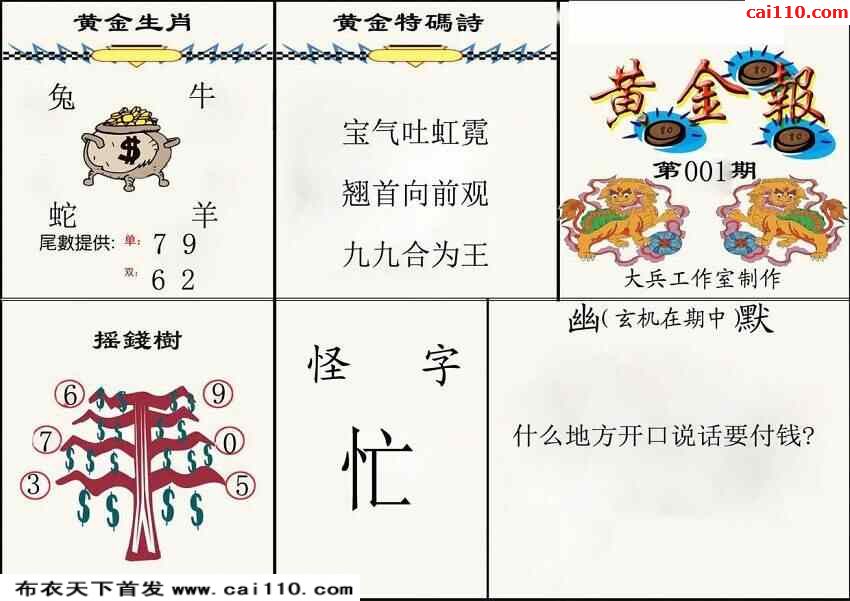 cai110.com
黄金生肖
兔 牛
$
蛇 羊
尾數提供: 单: 7 9
双: 6 2
黄金特碼詩
宝气吐虹霓
翘首向前观
九九合为王
黄金報
第001期
大兵工作室制作
摇錢樹
6 9
7 0
3 5
怪字
忙
幽(玄机在期中)默
什么地方开口说话要付钱?
布衣天下首发 www.cai110.com